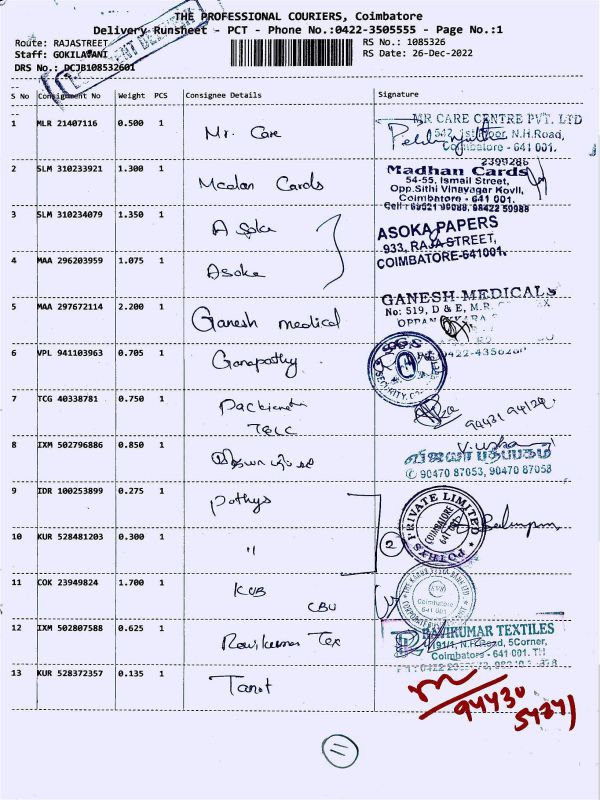 THE PROFESSIONAL COURIERS, Coimbatore
Delivery Runsheet - PCT - Phone No.:0422-3505555 - Page No.:1
Route: RAJASTREET
RS No.: 1085326
Staff: GOKILAVANI
RS Date: 26-Dec-2022
DRS No.: DCJB108532601
S No Consignment No Weight PCS Consignee Details Signature
1 MLR 21407116 0.500 1 Mr. Care
MR CARE CENTRE PVT. LTD
1st Floor, N.H.Road,
Coimbatore - 641 001.
2 SLM 310233921 1.300 1 Madan Cards
2399286
Madhan Cards
54-55, Ismail Street,
Opp.Sithi Vinayagar Kovil,
Coimbatore - 641 001.
3 SLM 310234079 1.350 1 Asoka
ASOKA PAPERS
933, RAJA STREET,
COIMBATORE-641001.
4 MAA 296203959 1.075 1 Asoka
5 MAA 297672114 2.200 1 Ganesh medical
GANESH MEDICALS
No: 519, D & E, M.R.
6 VPL 941103963 0.705 1 Ganapathy
SECURITY
7 TCG 40338781 0.750 1
94431 94129
8 IXM 502796886 0.850 1
விஜயா பதிப்பகம்
✆ 90470 87053, 90470 87058
9 IDR 100253899 0.275 1 Pothys
POTHYS PRIVATE LIMITED
COIMBATORE
10 KUR 528481203 0.300 1 "
2
11 COK 23949824 1.700 1 KVB
CBU
Coimbatore
641 001
12 IXM 502807588 0.625 1 Ravikumar Tex
RAVIKUMAR TEXTILES
191/1, N.H.Road, 5Corner,
Coimbatore - 641 001. TN
13 KUR 528372357 0.135 1 Tarot
94430
54341
11